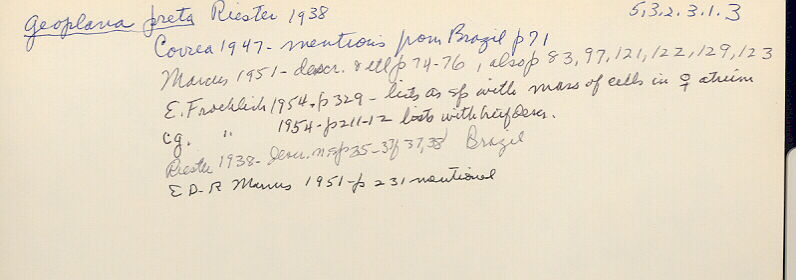 Geoplana preta Riester 1938 5,3.2.3.1.3
Correa 1947 - mentions from Brazil p71
Marcus 1951 - descr. & ill p 74-76, also p 83, 97, 121, 122, 129, 123
E. Froehlich 1954, p 329 - lists as sp with mass of cells in ♀ atrium
C.G. " 1954 - p211-12 lists with brief descr.
Riester 1938 - descr. n sp p35-37 37, 38 Brazil
E D-R Marcus 1951 - p 231 mentioned